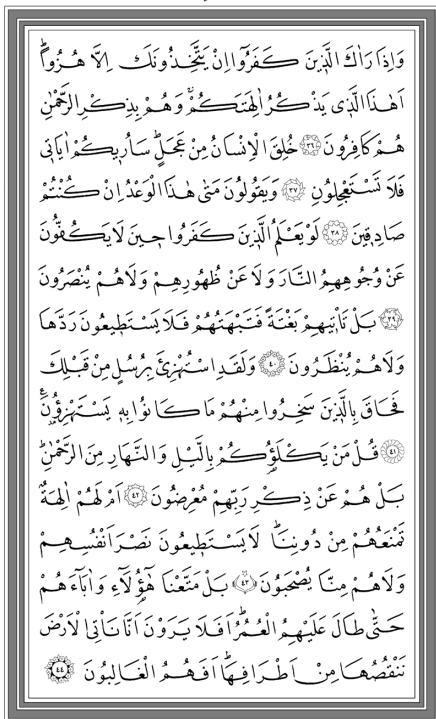 وَاِذَا رَاٰكَ الَّذ۪ينَ كَفَرُٓوا اِنْ يَتَّخِذُونَكَ اِلَّا هُزُوًاۜ
اَهٰذَا الَّذ۪ي يَذْكُرُ اٰلِهَتَكُمْۚ وَهُمْ بِذِكْرِ الرَّحْمٰنِ
هُمْ كَافِرُونَ ﴿٣٦﴾ خُلِقَ الْاِنْسَانُ مِنْ عَجَلٍۜ سَاُر۪يكُمْ اٰيَات۪ي
فَلَا تَسْتَعْجِلُونِ ﴿٣٧﴾ وَيَقُولُونَ مَتٰى هٰذَا الْوَعْدُ اِنْ كُنْتُمْ
صَادِق۪ينَ ﴿٣٨﴾ لَوْ يَعْلَمُ الَّذ۪ينَ كَفَرُوا ح۪ينَ لَا يَكُفُّونَ
عَنْ وُجُوهِهِمُ النَّارَ وَلَا عَنْ ظُهُورِهِمْ وَلَا هُمْ يُنْصَرُونَ
﴿٣٩﴾ بَلْ تَأْت۪يهِمْ بَغْتَةً فَتَبْهَتُهُمْ فَلَا يَسْتَط۪يعُونَ رَدَّهَا
وَلَا هُمْ يُنْظَرُونَ ﴿٤٠﴾ وَلَقَدِ اسْتُهْزِئَ بِرُسُلٍ مِنْ قَبْلِكَ
فَحَاقَ بِالَّذ۪ينَ سَخِرُوا مِنْهُمْ مَا كَانُوا بِه۪ يَسْتَهْزِؤُ۫نَ۟
﴿٤١﴾ قُلْ مَنْ يَكْلَؤُ۬كُمْ بِالَّيْلِ وَالنَّهَارِ مِنَ الرَّحْمٰنِۜ
بَلْ هُمْ عَنْ ذِكْرِ رَبِّهِمْ مُعْرِضُونَ ﴿٤٢﴾ اَمْ لَهُمْ اٰلِهَةٌ
تَمْنَعُهُمْ مِنْ دُونِنَاۜ لَا يَسْتَط۪يعُونَ نَصْرَ اَنْفُسِهِمْ
وَلَا هُمْ مِنَّا يُصْحَبُونَ ﴿٤٣﴾ بَلْ مَتَّعْنَا هٰٓؤُ۬لَٓاءِ وَاٰبَٓاءَهُمْ
حَتّٰى طَالَ عَلَيْهِمُ الْعُمُرُۜ اَفَلَا يَرَوْنَ اَنَّا نَأْتِي الْاَرْضَ
نَنْقُصُهَا مِنْ اَطْرَافِهَاۜ اَفَهُمُ الْغَالِبُونَ ﴿٤٤﴾